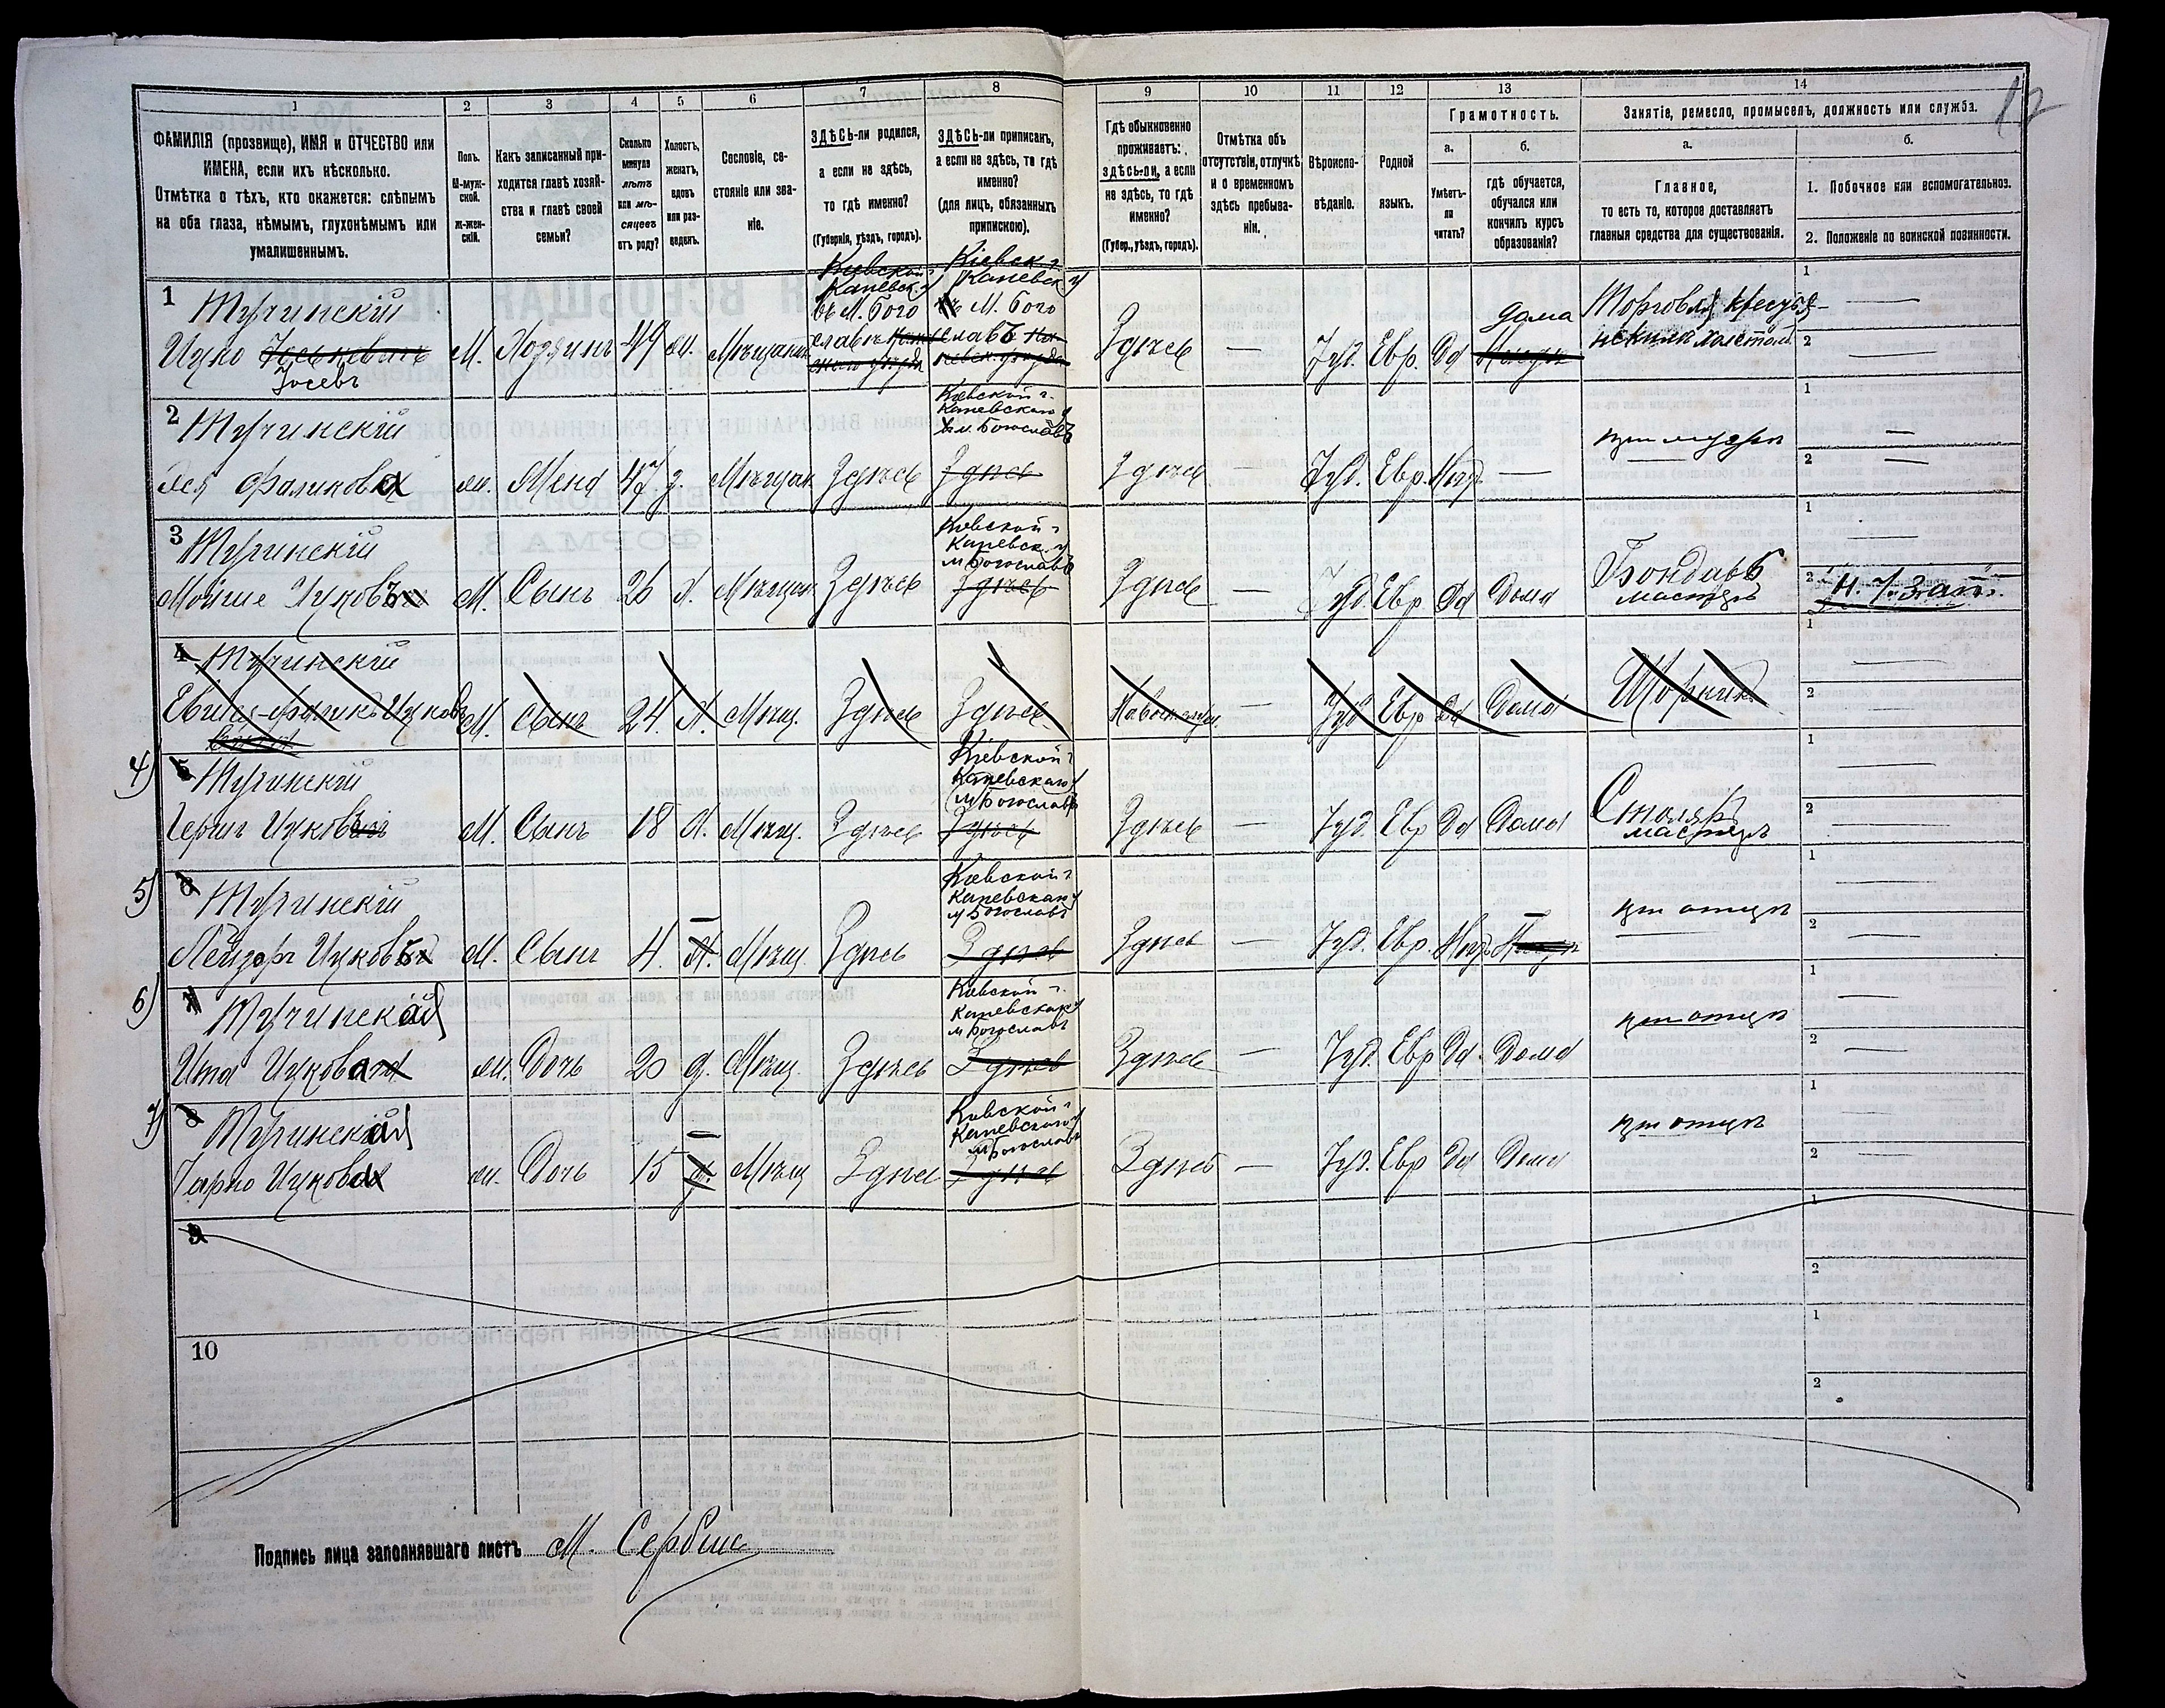 12
1 2 3 4 5 6 7 8 9 10 11 12 13 14
ФАМИЛІЯ (прозвище), ИМЯ и ОТЧЕСТВО или
ИМЕНА, если ихъ нѣсколько.
Отмѣтка о тѣхъ, кто окажется: слѣпымъ
на оба глаза, нѣмымъ, глухонѣмымъ или
умалишеннымъ.
Полъ.
М-муж-
ской.
Ж-жен-
скій.
Какъ записанный при-
ходится главѣ хозяй-
ства и главѣ своей
семьи?
Сколько
минуло
лѣтъ
или мѣ-
сяцевъ
отъ роду?
Холостъ,
женатъ,
вдовъ
или раз-
веденъ.
Сословіе, со-
стояніе или зва-
ніе.
ЗДѢСЬ-ли родился,
а если не здѣсь,
то гдѣ именно?
(Губернія, уѣздъ, городъ).
ЗДѢСЬ-ли приписанъ,
а если не здѣсь, то гдѣ
именно?
(для лицъ, обязанныхъ
припискою).
Гдѣ обыкновенно
проживаетъ:
здѣсь-ли, а если
не здѣсь, то гдѣ
именно?
(Губер., уѣздъ, городъ).
Отмѣтка объ
отсутствіи, отлучкѣ
и о временномъ
здѣсь пребыва-
ніи.
Вѣроиспо-
вѣданіе.
Родной
языкъ.
Грамотность.
а.
Умѣетъ-
ли
читать?
б.
гдѣ обучается,
обучался или
кончилъ курсъ
образованія?
Занятіе, ремесло, промыселъ, должность или служба.
а.
Главное,
то есть то, которое доставляетъ
главныя средства для существованія.
б.
1. Побочное или вспомогательное.
2. Положеніе по воинской повинности.
1 Тучинскій
Ицко Іоськовичъ
Іосевъ
М. Хозяинъ 49 ж. Мѣщанин
Кіевской г
Каневск. у
въ М. Бого
славѣ
Кіевск г
Каневск. у
М. Бого
славъ
Здѣсь Іуд. Евр. Да дома
Торговля крестья-
нскимъ холстомъ
1 —
2 —
2 Тучинскій
Фаликова ж. Жена 47 з. Мѣщан. Здѣсь
Кіевской г.
Каневскаго у
м. Богославъ
Здѣсь
Здѣсь — Іуд. Евр. Нѣт —
при мужѣ
1 —
2 —
3 Тучинскій
Мойше Ицковъ М. Сынъ 26 Х. Мѣщан Здѣсь
Кіевской г
Каневск. у
м Богославъ
Здѣсь
Здѣсь — Іуд. Евр Да Дома
Бондарь
мастеръ
1 —
2 Н. Ч. Зап.
4 Тучинскій
М. Сынъ 24. Х. Мѣщ. Здѣсь Здѣсь — Іуд Евр Да Дома Шорник
1 —
2 —
4) 5 Тучинскій
Гершъ Ицковъ М. Сынъ 18 Х. Мѣщ. Здѣсь
Кіевской г
Каневскаго у
м Богославъ
Здѣсь
Здѣсь — Іуд. Евр Да Дома
Столяръ
мастеръ
1 —
2 —
5) 6 Тучинскій
Лейзоръ Ицковъ М. Сынъ 4. Х. Мѣщ. Здѣсь
Кіевской г
Каневскаго у
м Богославъ
Здѣсь
Здѣсь — Іуд. Евр. Нѣт
при отцѣ
1 —
2 —
6) 7 Тучинская
Ита Ицкова ж. Дочь 20 д. Мѣщ. Здѣсь
Кіевской г.
Каневскаго у
м Богославъ
Здѣсь
Здѣсь — Іуд. Евр Да Дома
при отцѣ
1 —
2 —
7) 8 Тучинская
Ицкова ж. Дочь 15 Мѣщ Здѣсь
Кіевской г
Каневскаго у
м Богославъ
Здѣсь
Здѣсь — Іуд. Евр Да Дома
при отцѣ
1 —
2 —
9
1
2
10
1
2
Подпись лица заполнявшаго листъ М. Сербин